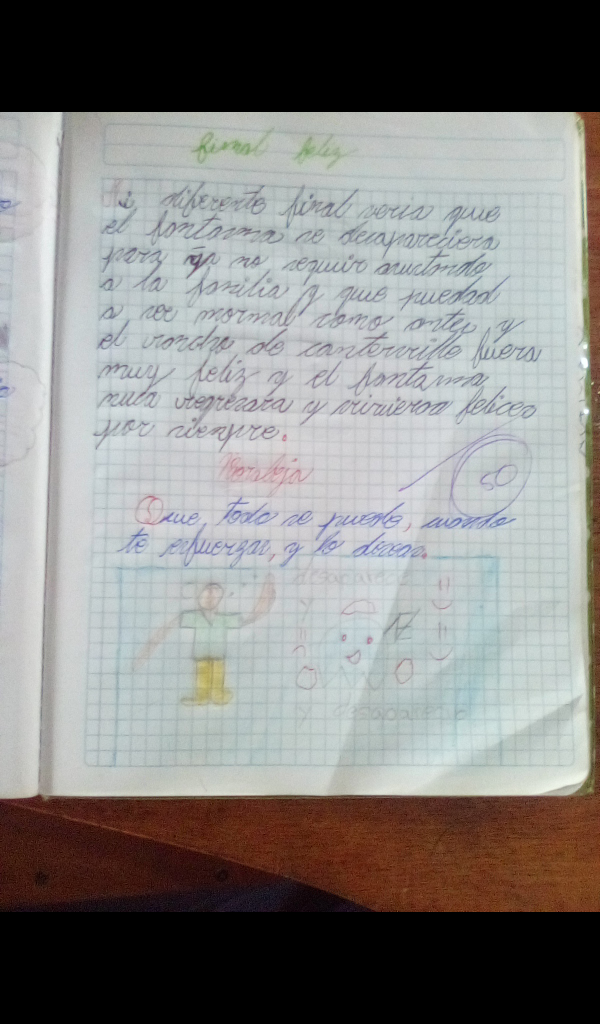 final feliz
mi diferente final seria que
el fantasma se desapareciera
para no seguir asustando
a la familia y que puedad
a ser normal como antes y
el rancho de canterville fuera
muy feliz y el fantasma
nuca regresara y vivieron felices
por siempre.
Moraleja
50
Que, todo se puede, cuando
te esfuerzas, y lo deseas.
desaparecio
y
y desaparecio